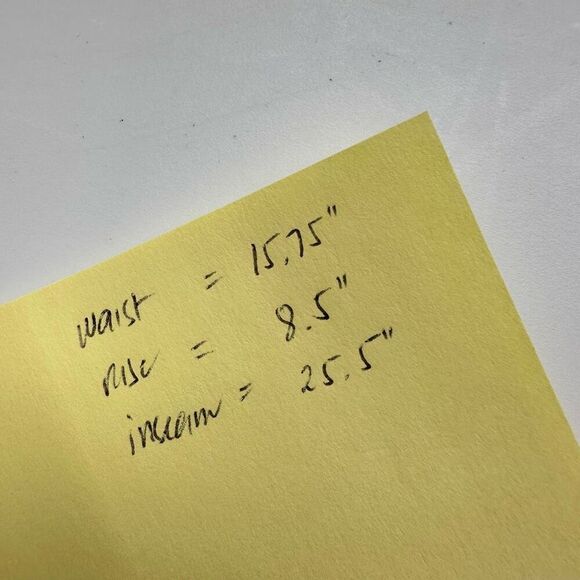 waist = 15.75"
rise = 8.5"
inseam = 25.5"